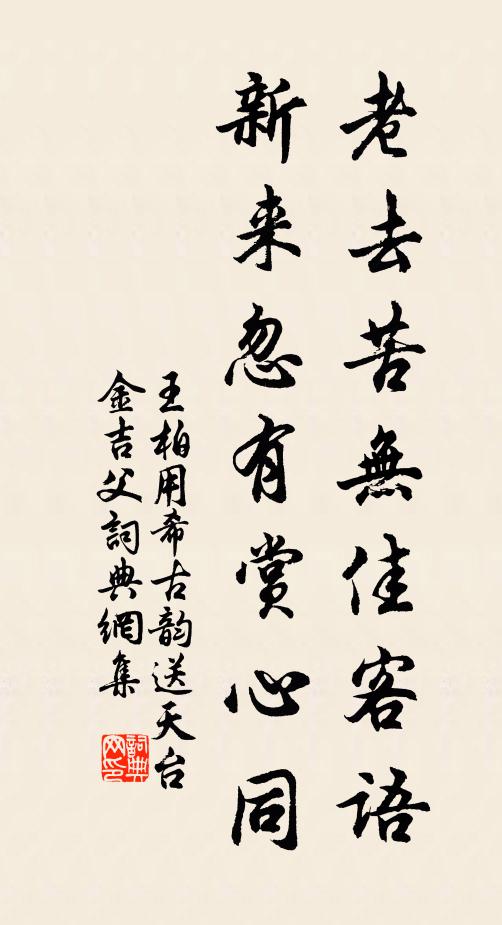 老去苦無佳客語
新来忽有赏心同
王柏用希古韵送天台
金吉父詞典網集
詞典網印